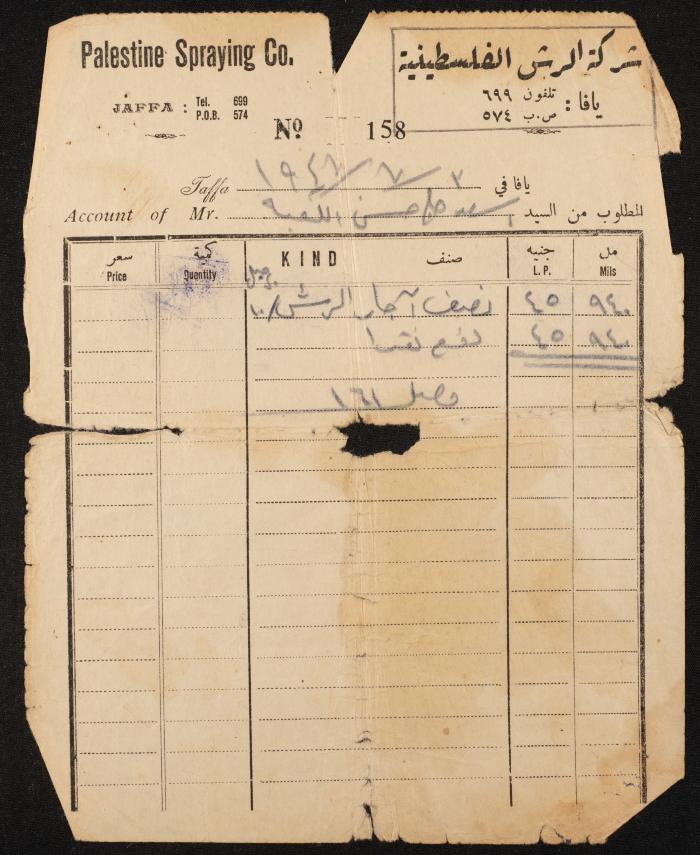 Palestine Spraying Co.
JAFFA : Tel. 699
P.O.B. 574
شركة الرش الفلسطينية
يافا : تلفون ٦٩٩
ص.ب ٥٧٤
Nº 158
Jaffa ٣ / ٧ / ١٩٤٦ يافا في
Account of Mr. حسن المطلوب من السيد
سعر كمية صنف جنيه مل
Price Quantity KIND L.P. Mils
نصف آجار الرش ٤٥ ٩٤٠
دفع نقدا ٤٥ ٩٤٠
وصل ١٦١